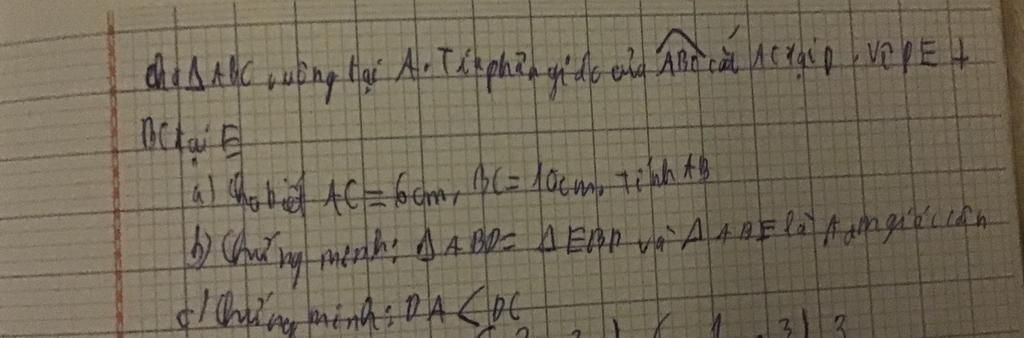 Cho ΔABC vuông tại A. Tia phân giác của ABC cắt AC tại D, vẽ DE ⊥
BC tại E
a) Cho biết AC = 6cm, BC = 10cm, Tính AB
b) Chứng minh: ΔABD = ΔEBD và ΔABE là tam giác cân
c) Chứng minh: DA < DC